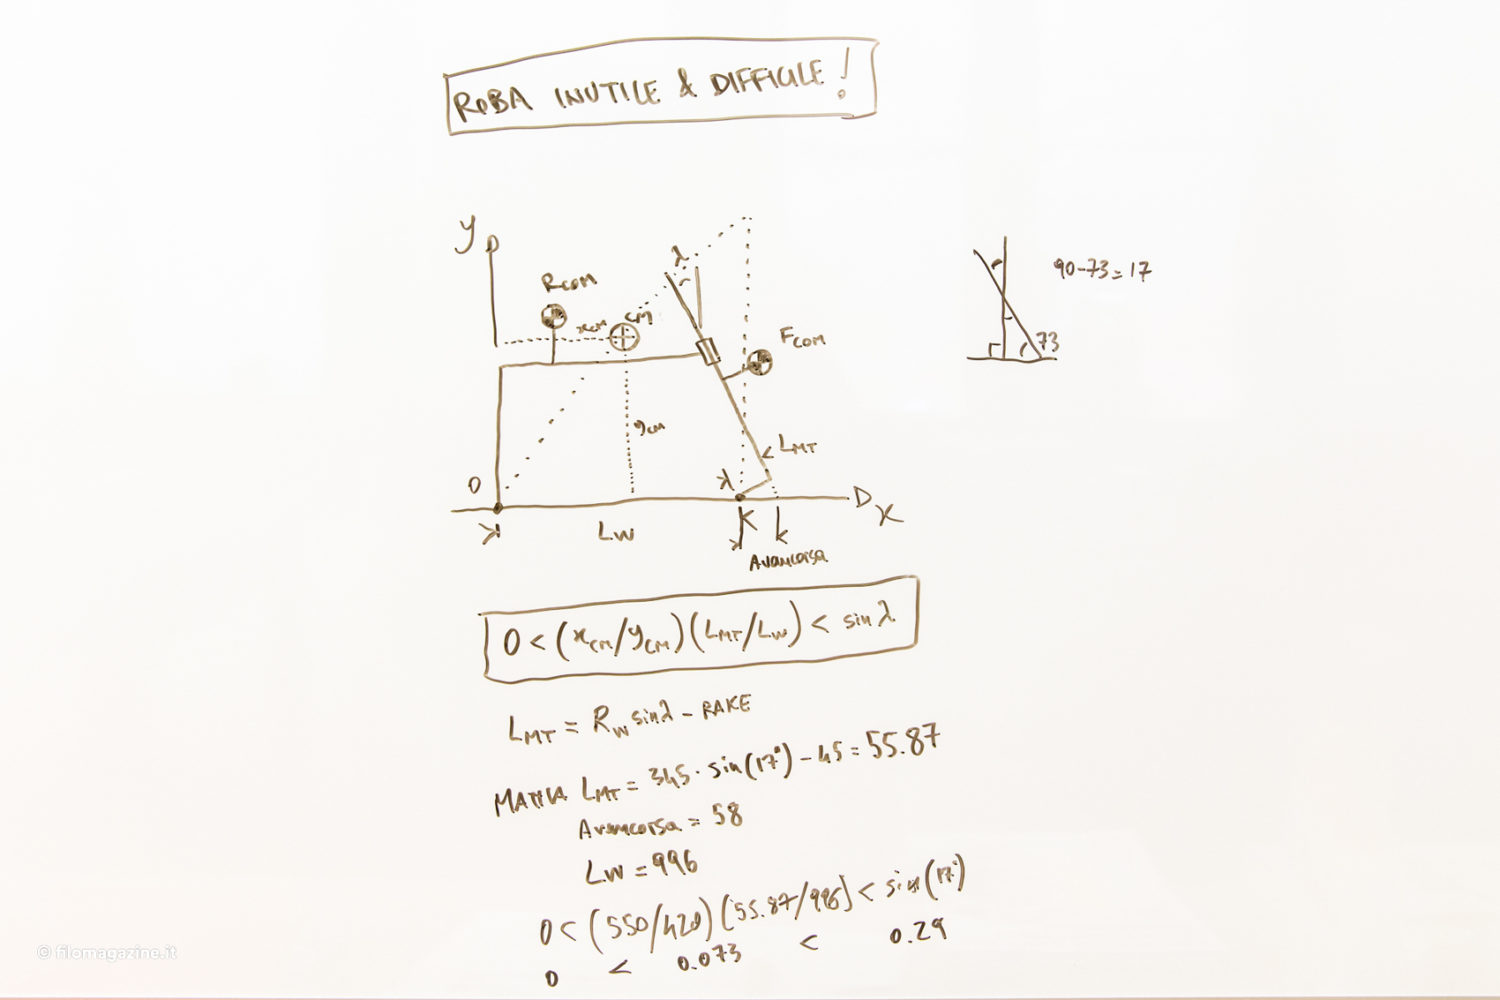 ROBA INUTILE & DIFFICILE!
y
RCOM
xCM
CM
λ
FCOM
90-73=17
73
yCM
LMT
0
x
LW
Avancorsa
0 < (xCM/yCM)(LMT/LW) < sin λ
LMT = RW sin λ - RAKE
LMT = 345 · sin(17°) - 45 = 55.87
Avancorsa = 58
LW = 996
0 < (550/420)(55.87/996) < sin(17°)
0 < 0.073 < 0.29
© filomagazine.it